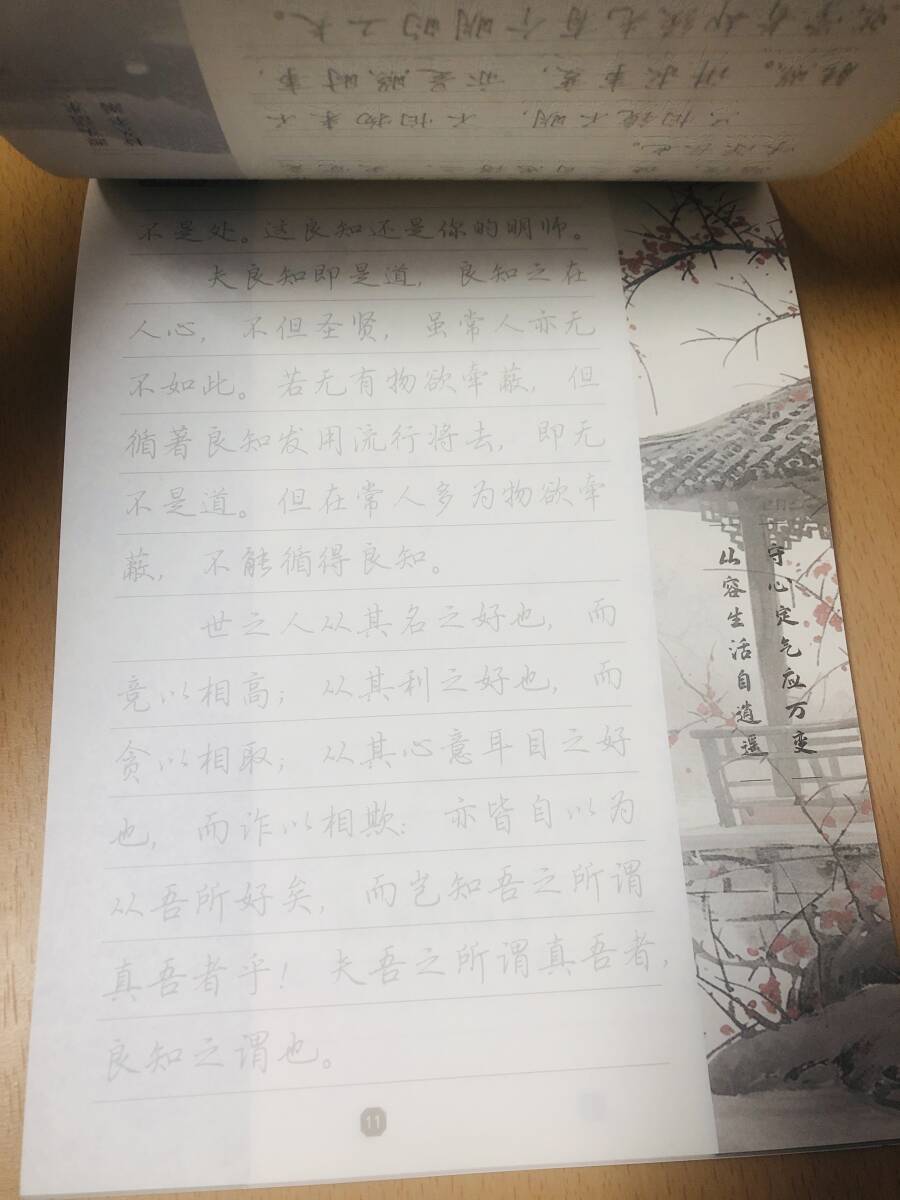 不是处。这良知还是你的明师。
夫良知即是道，良知之在
人心，不但圣贤，虽常人亦无
不如此。若无有物欲牵蔽，但
循著良知发用流行将去，即无
不是道。但在常人多为物欲牵
蔽，不能循得良知。
世之人从其名之好也，而
竞以相高；从其利之好也，而
贪以相取；从其心意耳目之好
也，而诈以相欺：亦皆自以为
从吾所好矣，而岂知吾之所谓
真吾者乎！夫吾之所谓真吾者，
良知之谓也。
守心定气应万变
山容生活自逍遥
11